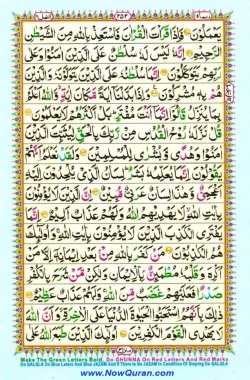 ٢٥٣
يَعْمَلُوْنَ فَاِذَا قَرَاْتَ الْقُرْاٰنَ فَاسْتَعِذْ بِاللّٰهِ مِنَ الشَّيْطٰنِ
الرَّجِيْمِ اِنَّهٗ لَيْسَ لَهٗ سُلْطٰنٌ عَلَى الَّذِيْنَ اٰمَنُوْا وَعَلٰى
رَبِّهِمْ يَتَوَكَّلُوْنَ اِنَّمَا سُلْطٰنُهٗ عَلَى الَّذِيْنَ يَتَوَلَّوْنَهٗ وَالَّذِيْنَ
هُمْ بِهٖ مُشْرِكُوْنَ وَاِذَا بَدَّلْنَآ اٰيَةً مَّكَانَ اٰيَةٍ وَّاللّٰهُ اَعْلَمُ
بِمَا يُنَزِّلُ قَالُوْٓا اِنَّمَآ اَنْتَ مُفْتَرٍ بَلْ اَكْثَرُهُمْ لَا يَعْلَمُوْنَ
قُلْ نَزَّلَهٗ رُوْحُ الْقُدُسِ مِنْ رَّبِّكَ بِالْحَقِّ لِيُثَبِّتَ الَّذِيْنَ
اٰمَنُوْا وَهُدًى وَّبُشْرٰى لِلْمُسْلِمِيْنَ وَلَقَدْ نَعْلَمُ اَنَّهُمْ
يَقُوْلُوْنَ اِنَّمَا يُعَلِّمُهٗ بَشَرٌ لِسَانُ الَّذِيْ يُلْحِدُوْنَ اِلَيْهِ
اَعْجَمِيٌّ وَّهٰذَا لِسَانٌ عَرَبِيٌّ مُّبِيْنٌ اِنَّ الَّذِيْنَ لَا يُؤْمِنُوْنَ
بِاٰيٰتِ اللّٰهِ لَا يَهْدِيْهِمُ اللّٰهُ وَلَهُمْ عَذَابٌ اَلِيْمٌ اِنَّمَا
يَفْتَرِي الْكَذِبَ الَّذِيْنَ لَا يُؤْمِنُوْنَ بِاٰيٰتِ اللّٰهِ وَاُولٰٓئِكَ
هُمُ الْكٰذِبُوْنَ مَنْ كَفَرَ بِاللّٰهِ مِنْ بَعْدِ اِيْمَانِهٖٓ اِلَّا مَنْ
اُكْرِهَ وَقَلْبُهٗ مُطْمَئِنٌّۢ بِالْاِيْمَانِ وَلٰكِنْ مَّنْ شَرَحَ بِالْكُفْرِ
صَدْرًا فَعَلَيْهِمْ غَضَبٌ مِّنَ اللّٰهِ وَلَهُمْ عَذَابٌ عَظِيْمٌ
ذٰلِكَ بِاَنَّهُمُ اسْتَحَبُّوا الْحَيٰوةَ الدُّنْيَا عَلَى الْاٰخِرَةِ وَاَنَّ اللّٰهَ
لَا يَهْدِي الْقَوْمَ الْكٰفِرِيْنَ اُولٰٓئِكَ
Make The Green Letters Bold, Do GHUNNA On Red Letters And Red Marks
Do QALQLA On Blue Leters And Blue JAZAM And If There Is No JAZAM In Condition Of Staying Do QALQLA
www.NowQuran.com